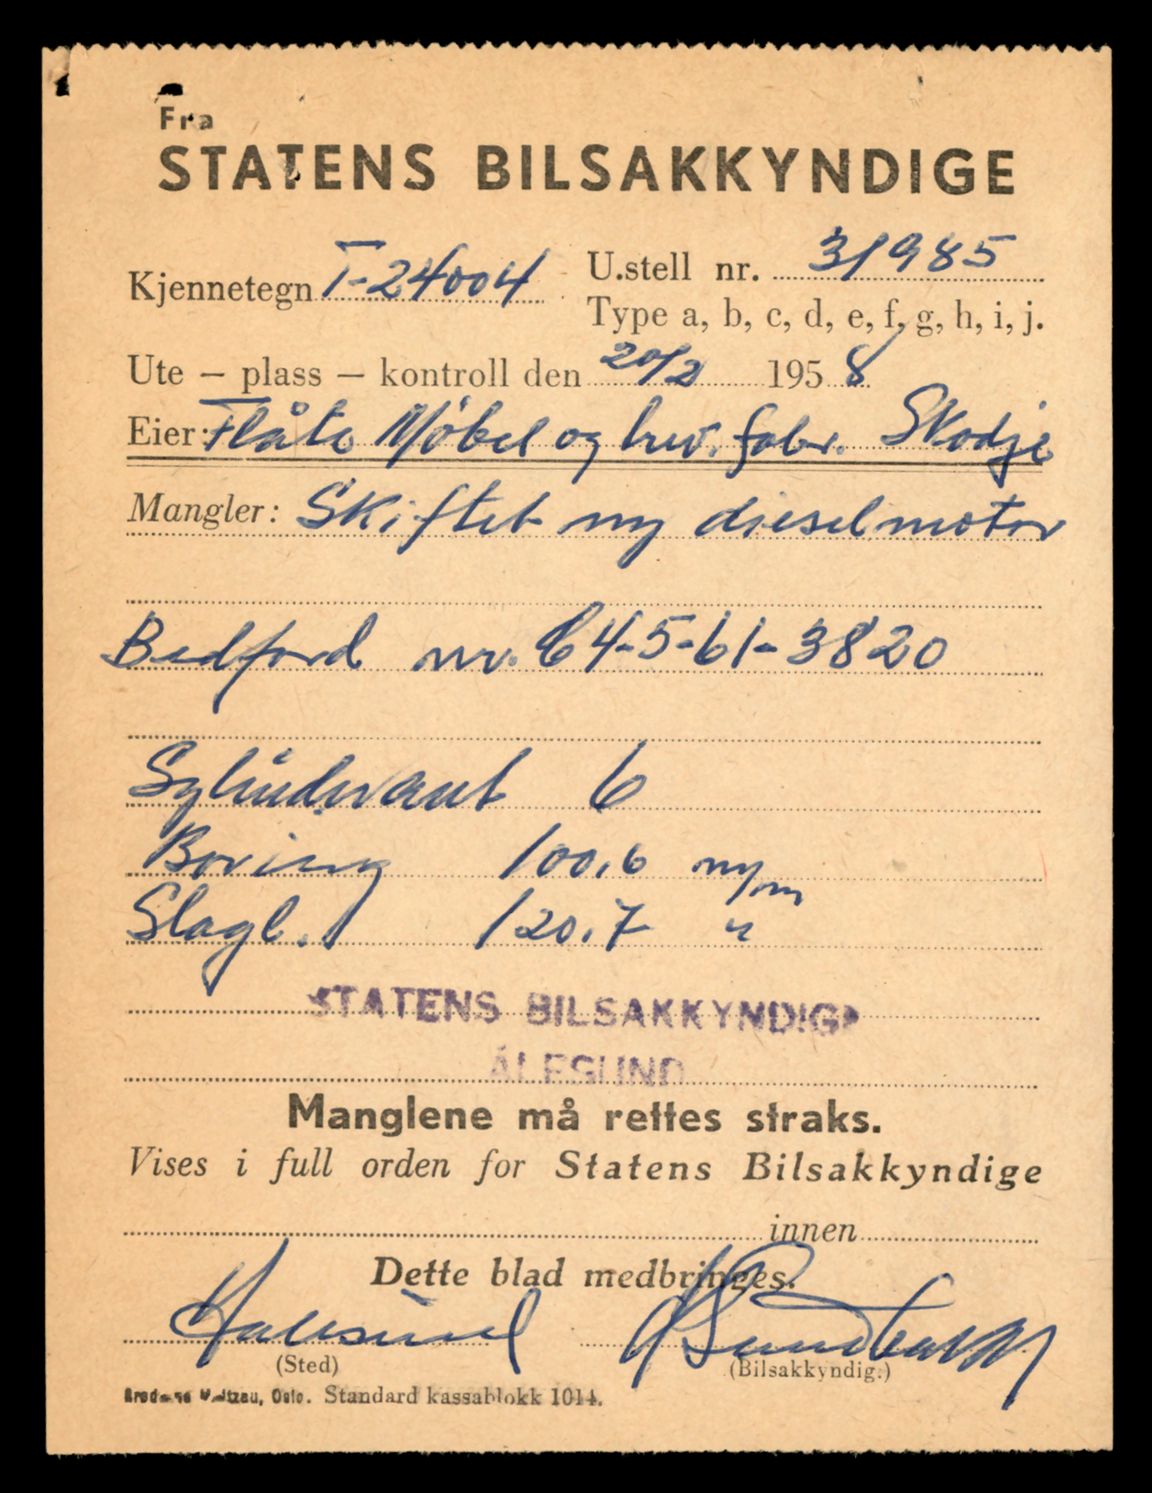 Fra
STATENS BILSAKKYNDIGE
Kjennetegn T-24004 U.stell nr. 31985
Type a, b, c, d, e, f, g, h, i, j.
Ute – plass – kontroll den 20/2 1958
Eier: Flåte Møbel og trev. fabr. Skodje
Mangler: Skiftet ny dieselmotor
Bedford nr. C4-5-61-3820
Sylinderant 6
Boring 100,6 m/m
Slagl. 120,7 "
STATENS BILSAKKYNDIGE
ÅLESUND
Manglene må rettes straks.
Vises i full orden for Statens Bilsakkyndige
innen
Dette blad medbringes.
Aalesund
(Sted) (Bilsakkyndig.)
Oslo. Standard kassablokk 1014.